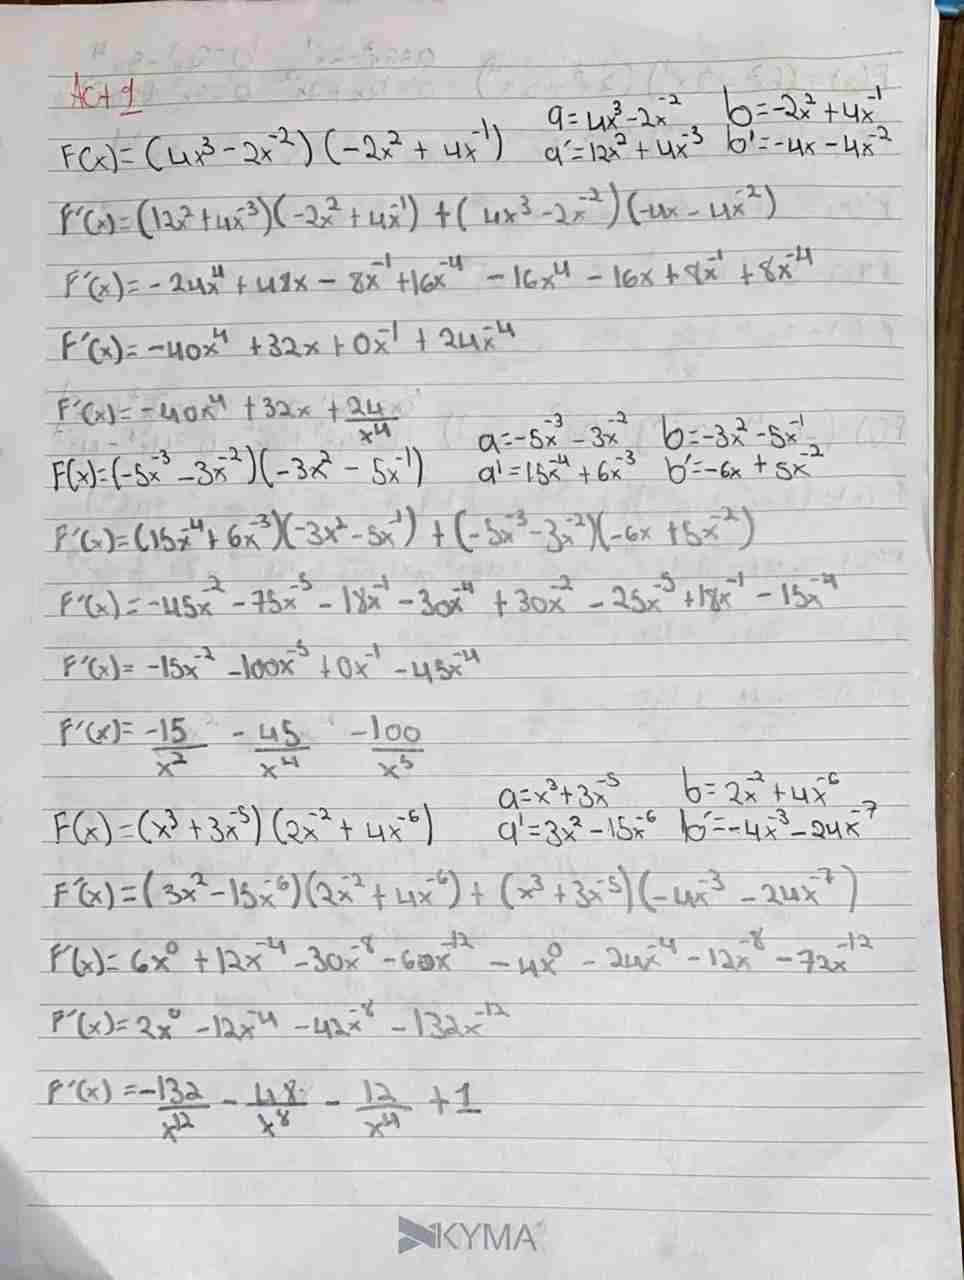 Act 1
a=4x³-2x⁻² b=-2x²+4x⁻¹
F(x)=(4x³-2x⁻²)(-2x²+4x⁻¹) a'=12x²+4x⁻³ b'=-4x-4x⁻²
F'(x)=(12x²+4x⁻³)(-2x²+4x⁻¹)+(4x³-2x⁻²)(-4x-4x⁻²)
F'(x)=-24x⁴+48x-8x⁻¹+16x⁻⁴-16x⁴-16x+8x⁻¹+8x⁻⁴
F'(x)=-40x⁴+32x+0x⁻¹+24x⁻⁴
F'(x)=-40x⁴+32x+24/x⁴
a=-5x⁻³-3x⁻² b=-3x²-5x⁻¹
F(x)=(-5x⁻³-3x⁻²)(-3x²-5x⁻¹) a'=15x⁻⁴+6x⁻³ b'=-6x+5x⁻²
F'(x)=(15x⁻⁴+6x⁻³)(-3x²-5x⁻¹)+(-5x⁻³-3x⁻²)(-6x+5x⁻²)
F'(x)=-45x⁻²-75x⁻⁵-18x⁻¹-30x⁻⁴+30x⁻²-25x⁻⁵+18x⁻¹-15x⁻⁴
F'(x)=-15x⁻²-100x⁻⁵+0x⁻¹-45x⁻⁴
F'(x)=-15/x² -45/x⁴ -100/x⁵
a=x³+3x⁻⁵ b=2x⁻²+4x⁻⁶
F(x)=(x³+3x⁻⁵)(2x⁻²+4x⁻⁶) a'=3x²-15x⁻⁶ b'=-4x⁻³-24x⁻⁷
F'(x)=(3x²-15x⁻⁶)(2x⁻²+4x⁻⁶)+(x³+3x⁻⁵)(-4x⁻³-24x⁻⁷)
F'(x)=6x⁰+12x⁻⁴-30x⁻⁸-60x⁻¹²-4x⁰-24x⁻⁴-12x⁻⁸-72x⁻¹²
F'(x)=2x⁰-12x⁻⁴-42x⁻⁸-132x⁻¹²
F'(x)=-132/x¹² -48/x⁸ -12/x⁴ +1
KYMA